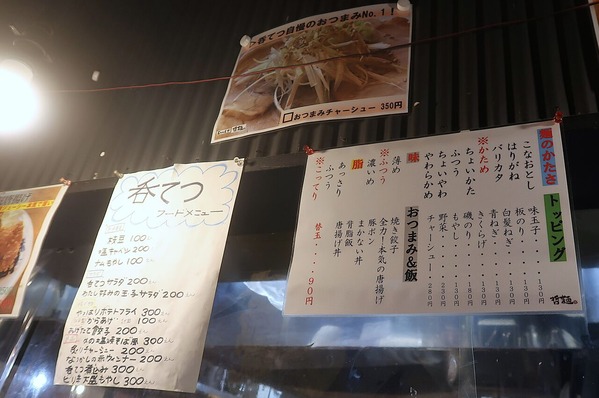 呑てつ自慢のおつまみNo.1!
おつまみチャーシュー 350円
呑てつ
フードメニュー
枝豆 100
塩キャベツ 200
ナムもやし 100
呑てつサラダ 200
やっぱりポテトフライ 300
からあげ 100
おけたて餃子 200
炙りチャーシュー 200
なつかしの赤ウィンナー 200
呑てつ煮込み 300
ピリ辛大盛もやし 300
麺のかたさ
こなおとし
はりがね
バリカタ
※かため
ちょいかた
ふつう
ちょいやわ
やわらかめ
味
薄め
※ふつう
濃いめ
脂
あっさり
ふつう
※こってり
トッピング
味玉子
板のり
白髪ねぎ
青ねぎ
きくらげ
磯のり
もやし
野菜
チャーシュー 280円
おつまみ&飯
焼き餃子
全力!本気の唐揚げ
豚ポン
まかない丼
背脂飯
唐揚げ丼
替玉 90円